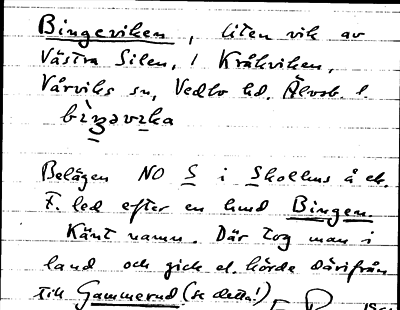 Bingeviken, liten vik av
Västra Silen, i Kråkviken,
Vårviks sn, Vedbo hd. Älvsb. l.
bìŋəvika
Belägen NO S i Skollens å ek.
F. led efter en hund Bingen.
Känt namn. Där tog man i
land och gick el. körde därifrån
till Gammerud (se detta!)